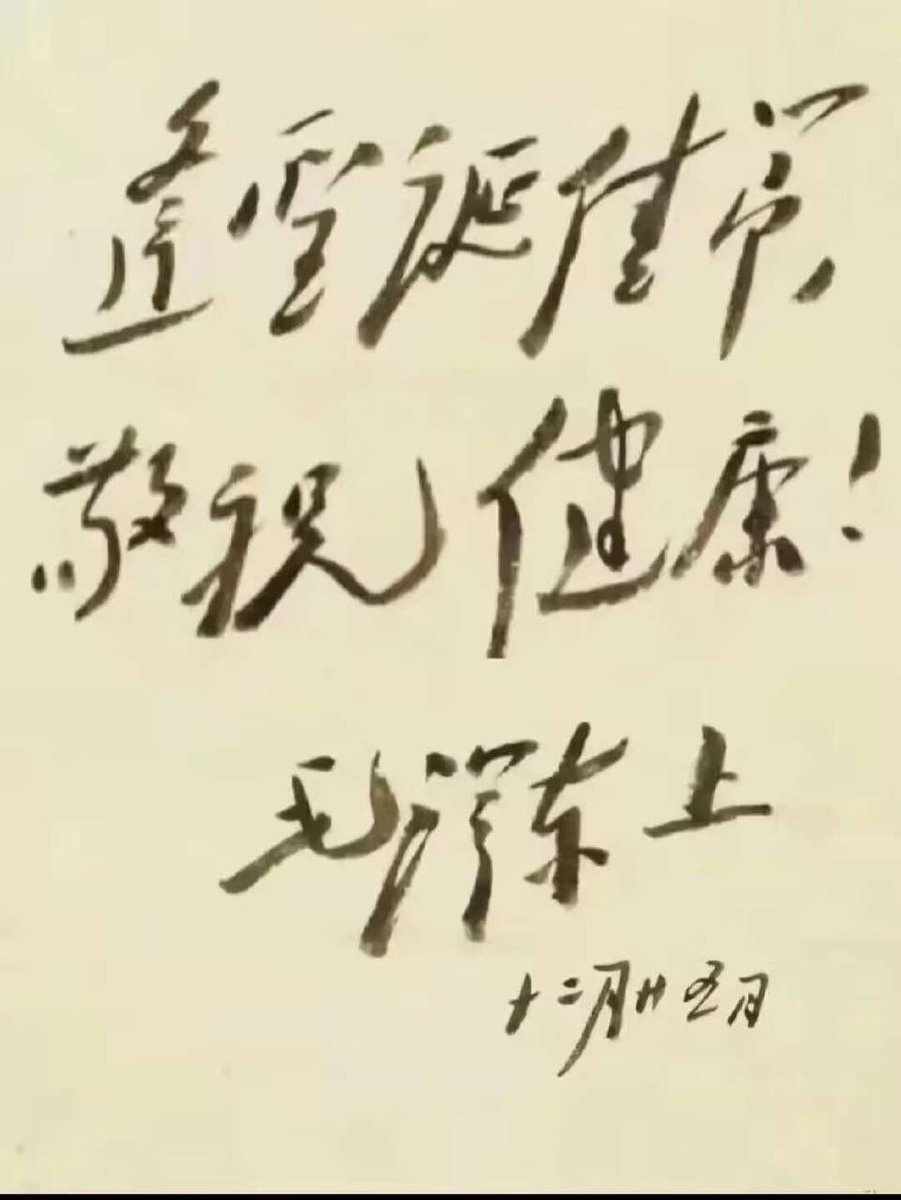 逢圣诞佳节
敬祝健康！
毛泽东上
十二月廿五日